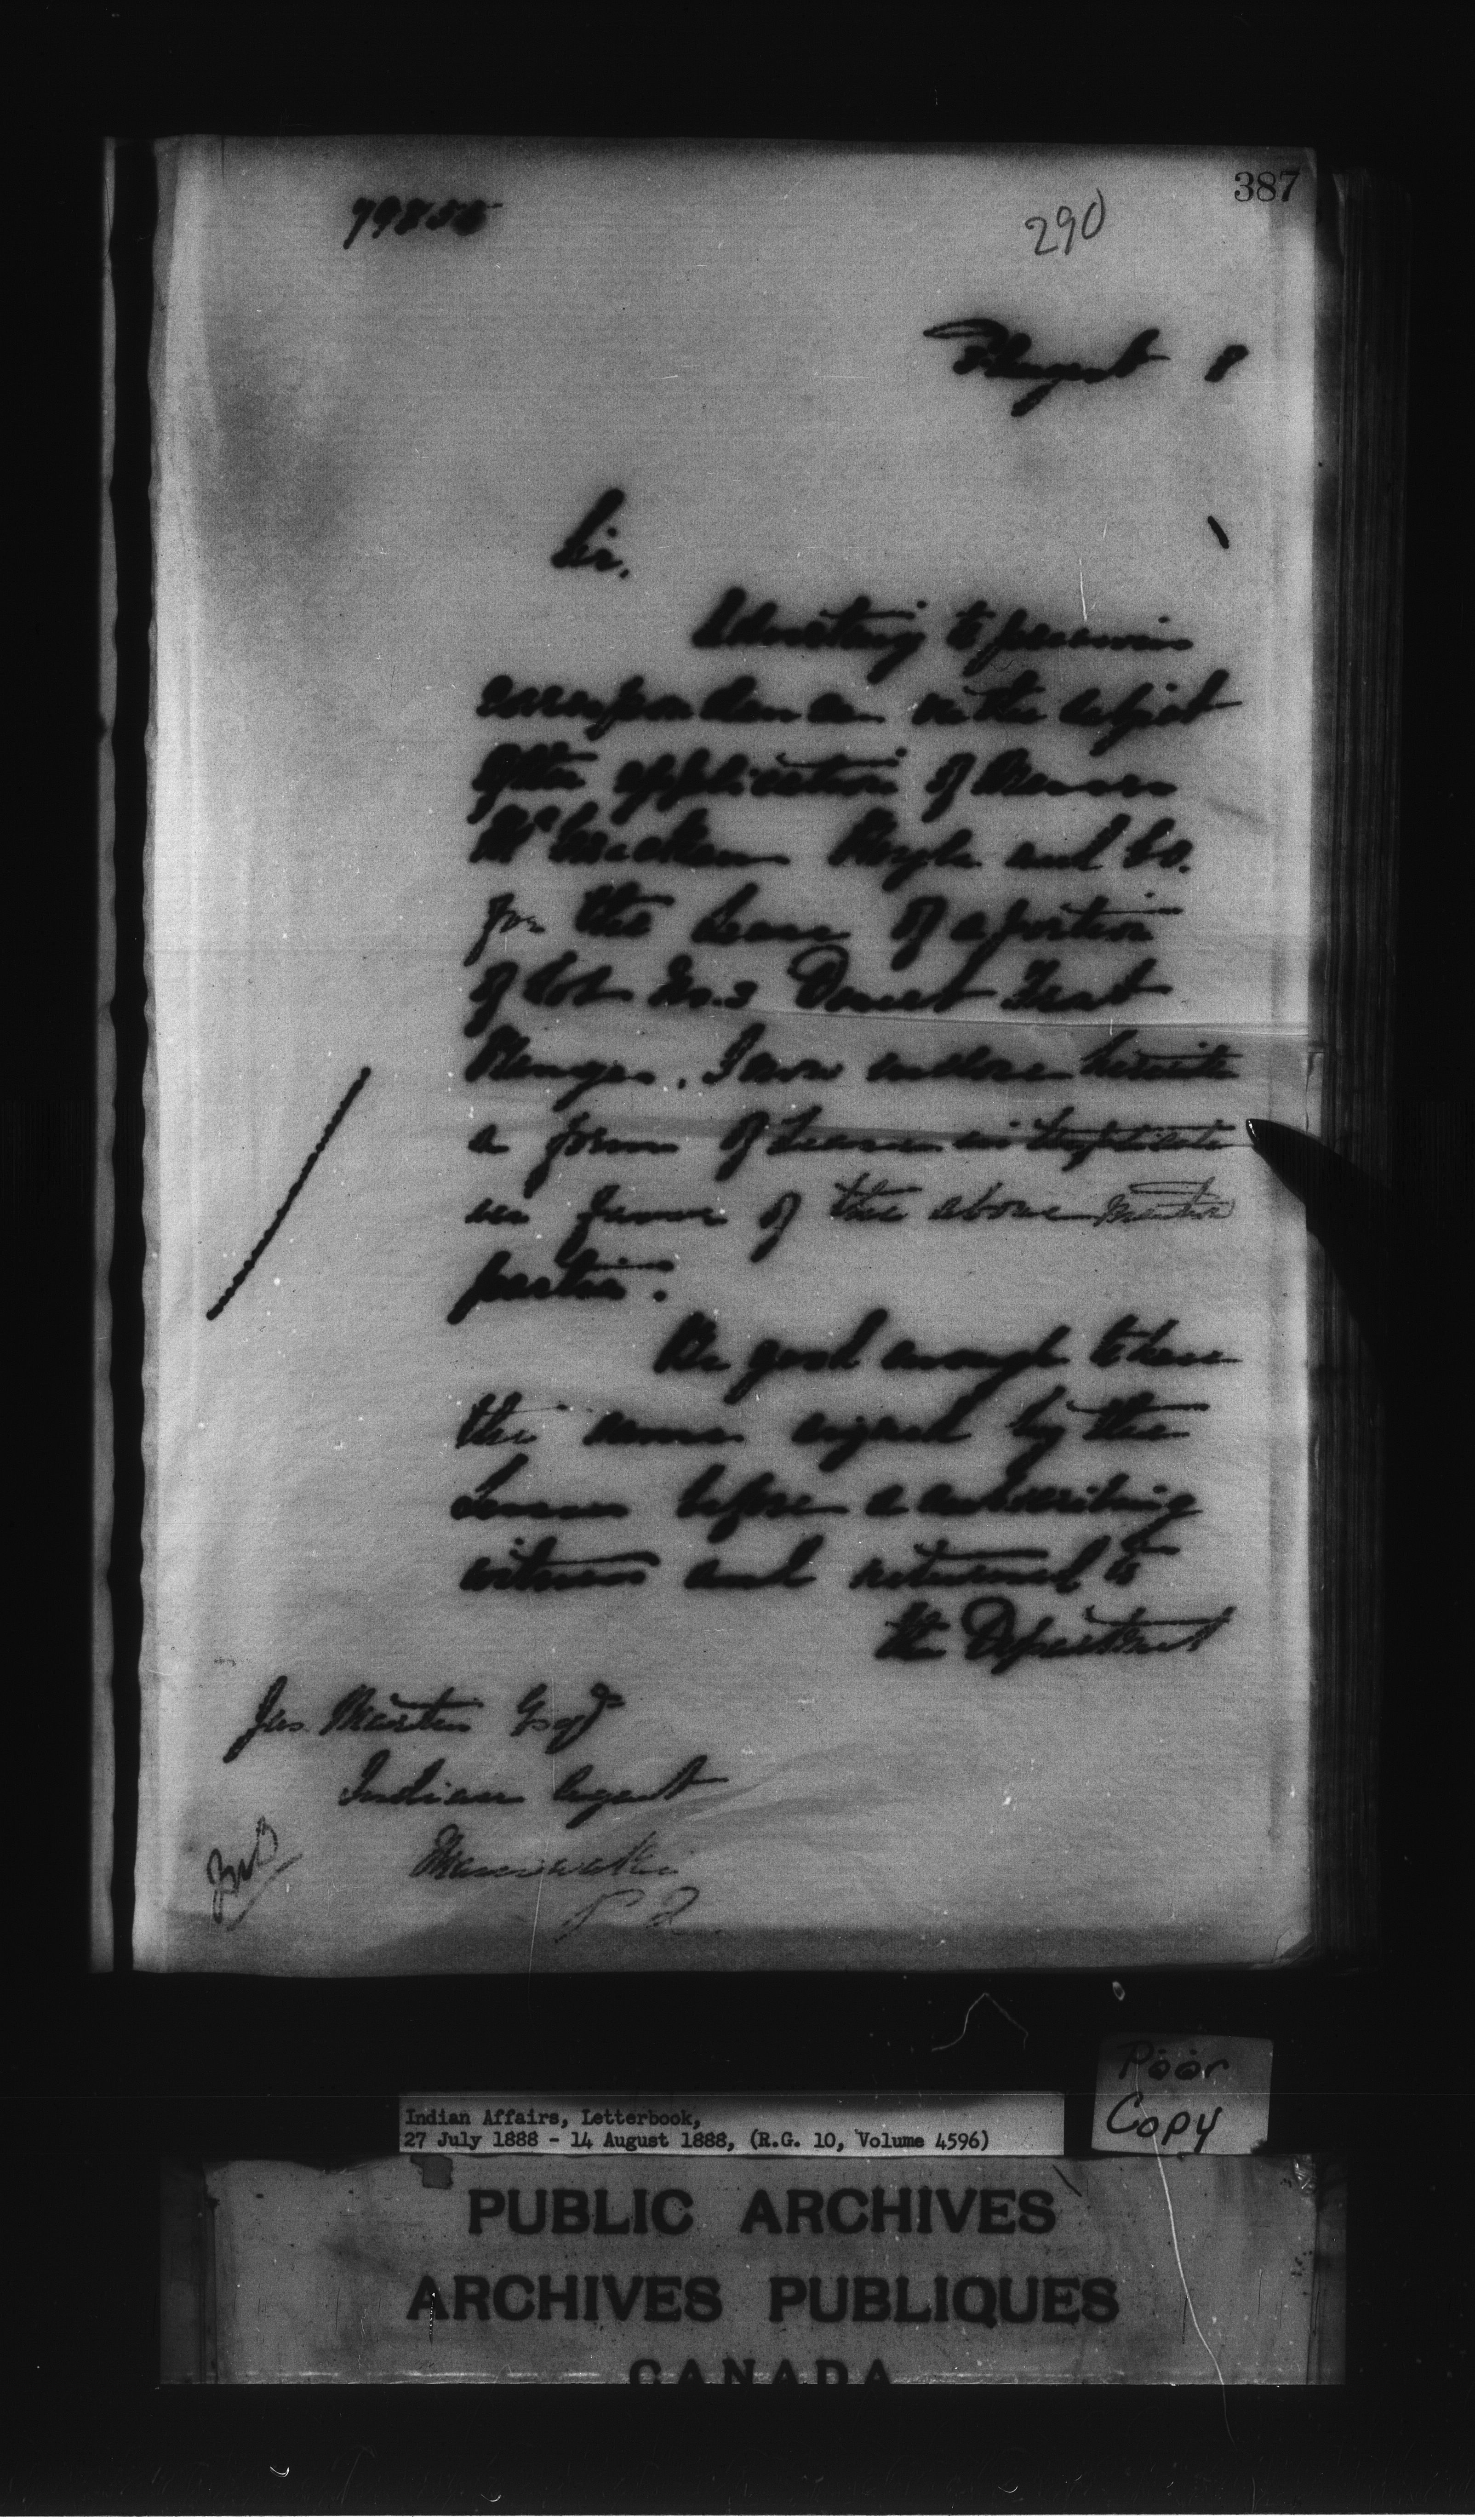 387
290
August 8
Sir,
Adverting to previous
correspondence on the subject
of the application of Messrs
McCracken and Co.
for the Lease of a portion
of Lot No. 3 Desert Front
Range, I now enclose herewith
a form of Lease in triplicate
in favor of the above
parties.
Be good enough to have
the same signed by the
Lessees before a subscribing
witness and returned to
the Department
Jas. Martin Esqr
Indian Agent
Maniwaki
P Q
Poor
Copy
Indian Affairs, Letterbook,
27 July 1888 - 14 August 1888, (R.G. 10, Volume 4596)
PUBLIC ARCHIVES
ARCHIVES PUBLIQUES
CANADA